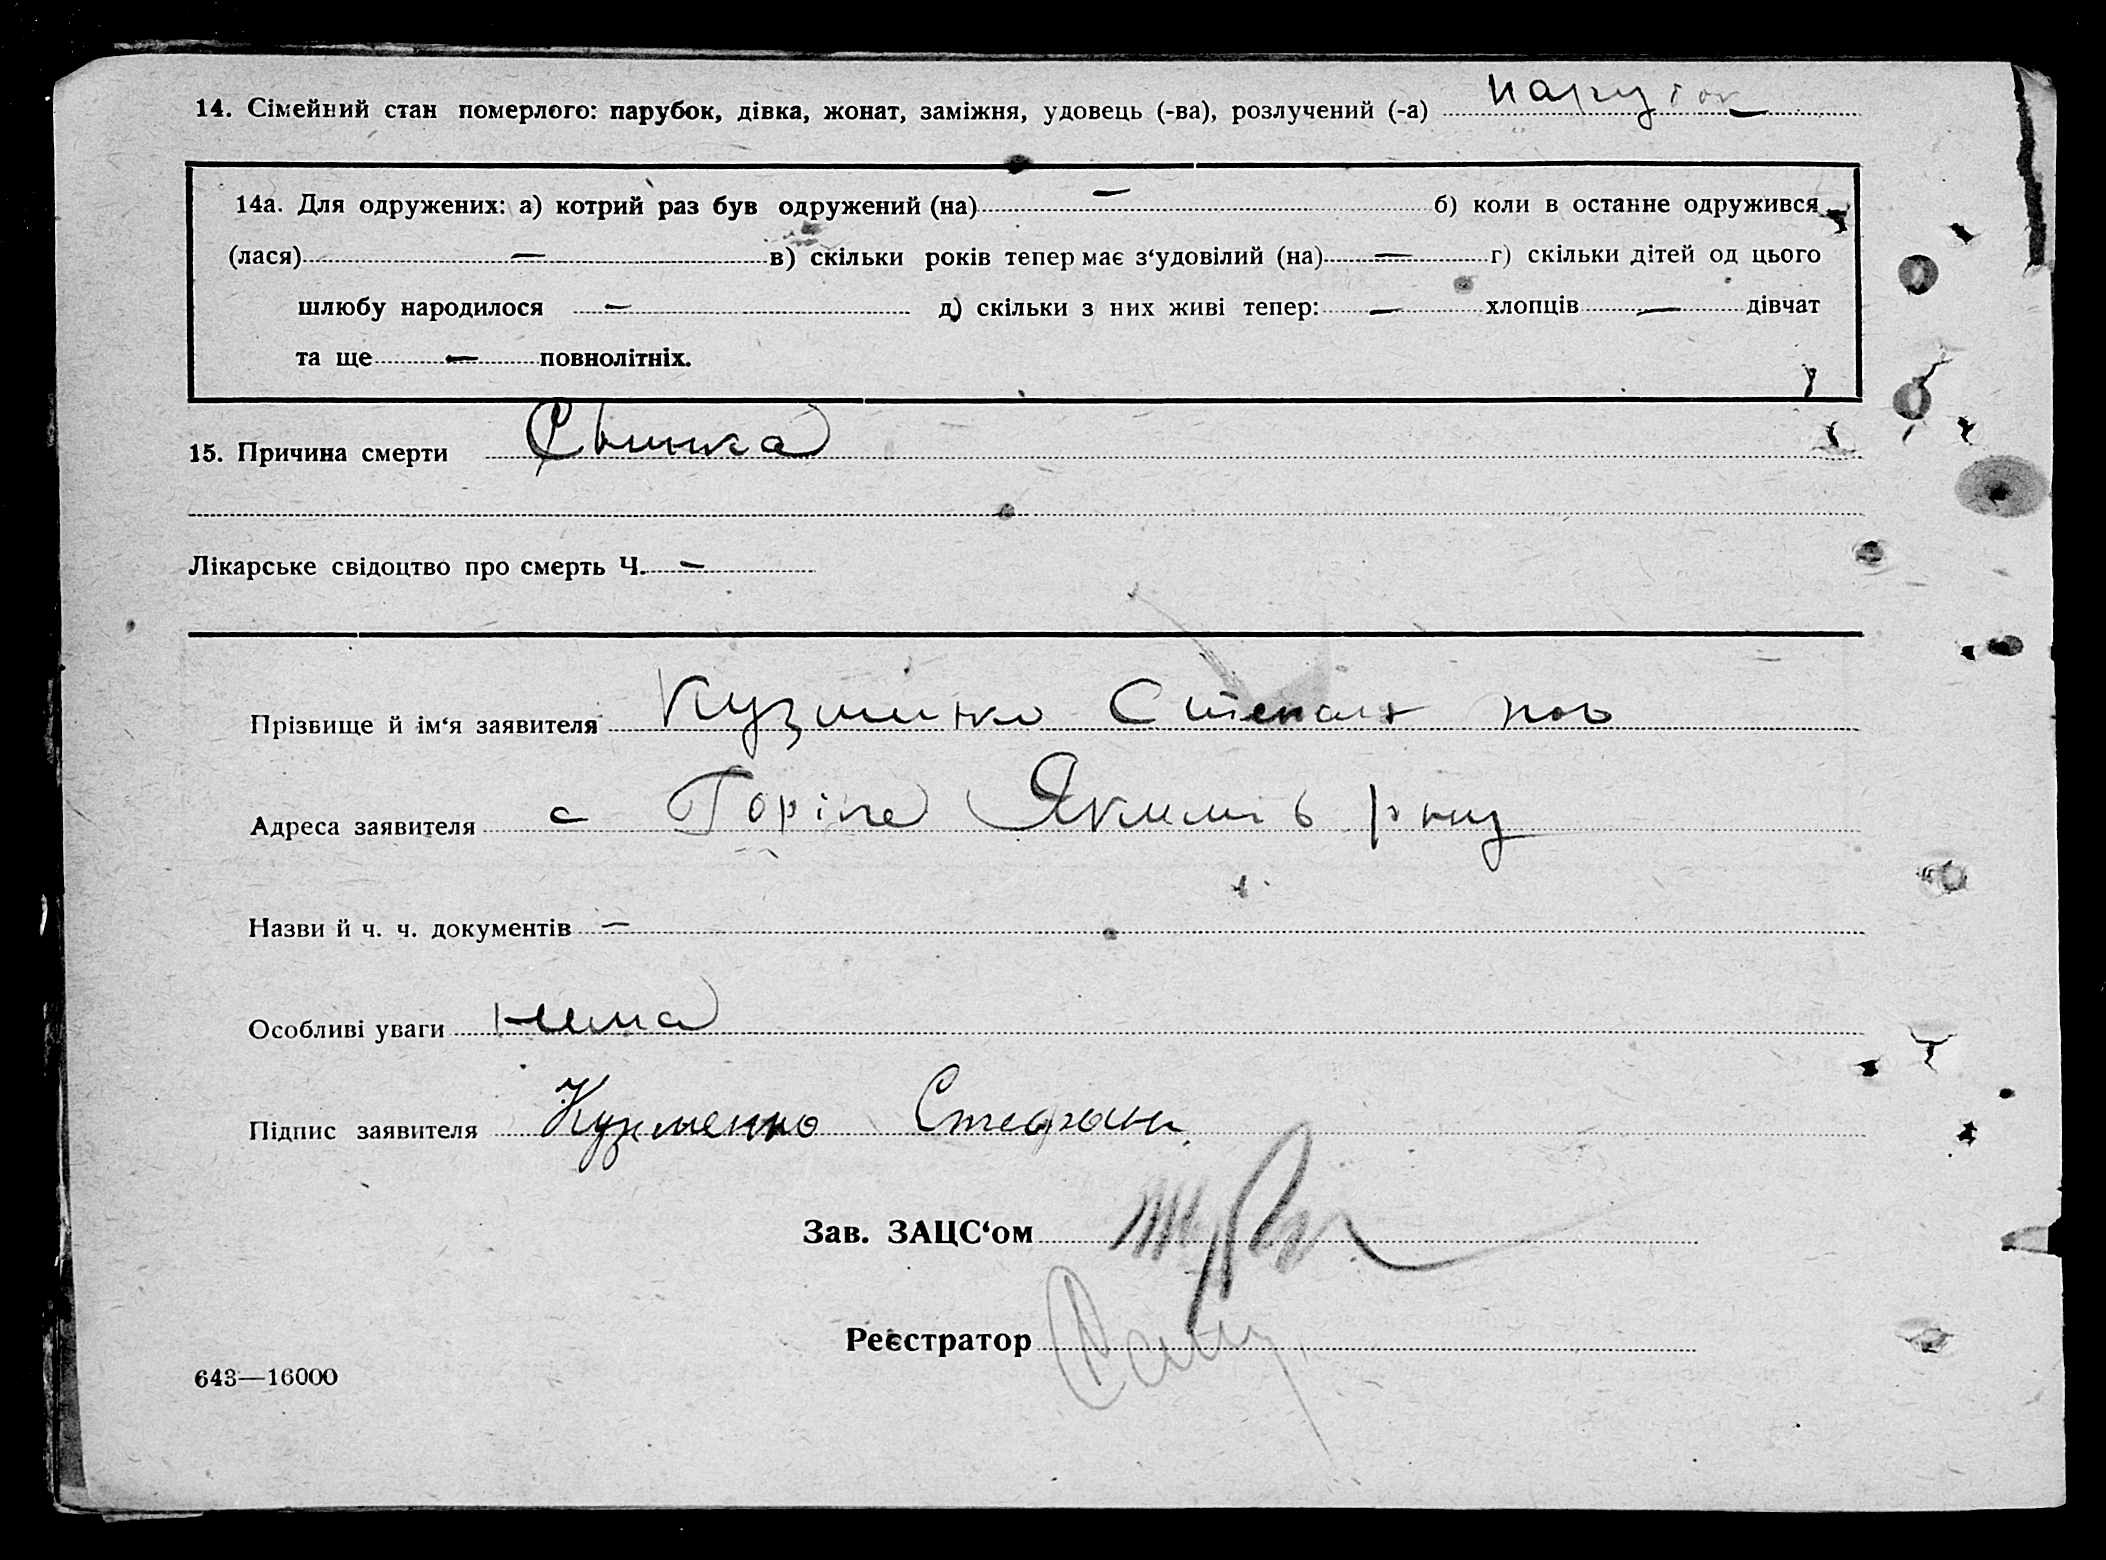 14. Сімейний стан померлого: парубок, дівка, жонат, заміжня, удовець (-ва), розлучений (-а) парубок
14а. Для одружених: а) котрий раз був одружений (на) — б) коли в останне одружився —
(лася) — в) скільки років тепер має з‘удовілий (на) — г) скільки дітей од цього
шлюбу народилося — д) скільки з них живі тепер: — хлопців — дівчат
та ще — повнолітніх.
15. Причина смерти Свинка
Лікарське свідоцтво про смерть Ч. —
Прізвище й ім‘я заявителя Кузминко Степан
Адреса заявителя с Горіле Якимів
Назви й ч. ч. документів —
Особливі уваги нема
Підпис заявителя Кузменко Стефан
Зав. ЗАЦС‘ом
Реєстратор
643—16000